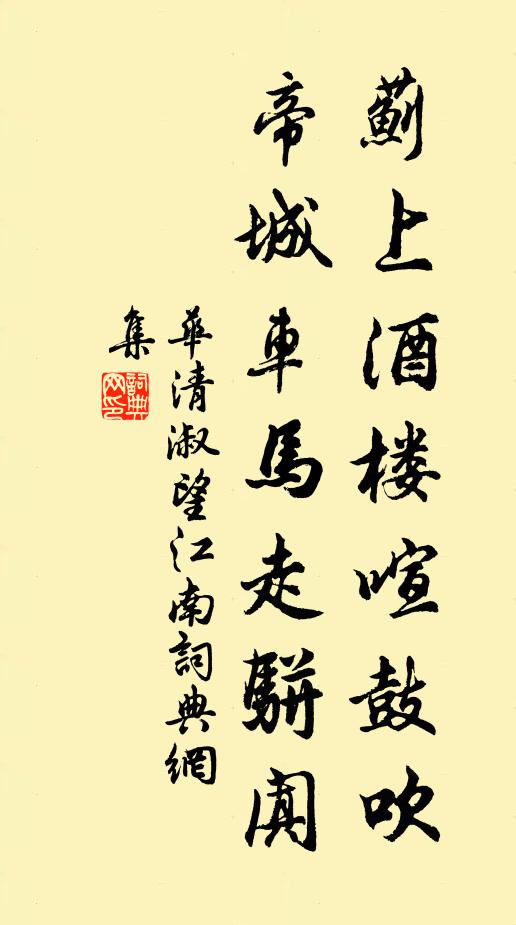 蓟上酒楼喧鼓吹
帝城車馬走駢闐
華清淑望江南詞典網
集
詞典
网印